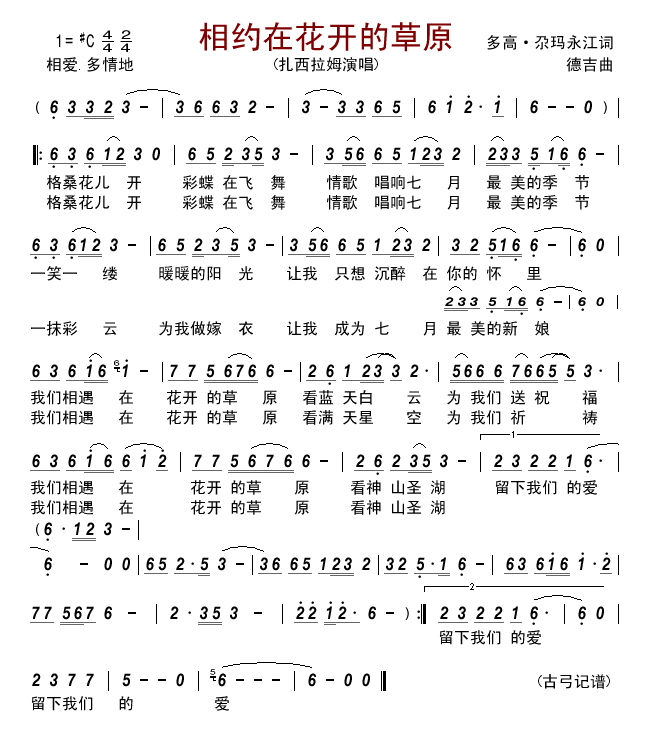 1= #C 4/4 2/4 相约在花开的草原 多高·尕玛永江词
相爱.多情地 (扎西拉姆演唱) 德吉曲
( 6 3 3 2 3 - | 3 6 6 3 2 - | 3 3 6 5 | 6 1 2· 1 | 6 - - 0 ) |
‖: 6 3 6 1 2 3 0 | 6 5 2 3 5 3 - | 3 5 6 6 5 1 2 3 2 | 2 3 3 5 1 6 6 - |
格桑花儿 开 彩蝶 在飞 舞 情歌 唱响七 月 最 美的季 节
格桑花儿 开 彩蝶 在飞 舞 情歌 唱响七 月 最 美的季 节
6 3 6 1 2 3 - | 6 5 2 3 5 3 - | 3 5 6 6 5 1 2 3 2 | 3 2 5 1 6 6 - | 6 0
一笑一 缕 暖暖的阳 光 让我 只想 沉醉 在 你的 怀 里
2 3 3 5 1 6 6 - | 6 0
一抹彩 云 为我做嫁 衣 让我 成为 七 月 最 美的新 娘
6 3 6 1 6 6 1 - | 7 7 5 6 7 6 6 - | 2 6 1 2 3 3 2· | 5 6 6 6 7 6 6 5 5 3· |
我们相遇 在 花开 的草 原 看蓝 天白 云 为 我们 送 祝 福
我们相遇 在 花开 的草 原 看满 天星 空 为 我们 祈 祷
6 3 6 1 6 6 1 2 | 7 7 5 6 7 6 6 - | 2 6 2 3 5 3 - | 1 2 3 2 2 1 6· |
我们相遇 在 花开 的草 原 看神 山圣 湖 留下我们 的爱
我们相遇 在 花开 的草 原 看神 山圣 湖
( 6· 1 2 3 - |
6 - 0 0 | 6 5 2· 5 3 - | 3 6 6 5 1 2 3 2 | 3 2 5· 1 6 - | 6 3 6 1 6 1· 2 |
7 7 5 6 7 6 - | 2· 3 5 3 - | 2 2 1 2· 6 - ) :‖ 2 2 3 2 2 1 6· | 6 0 |
留下我们 的爱
2 3 7 7 | 5 - - 0 | 5 6 - - - | 6 - 0 0 ‖ (古弓记谱)
留下我们 的 爱